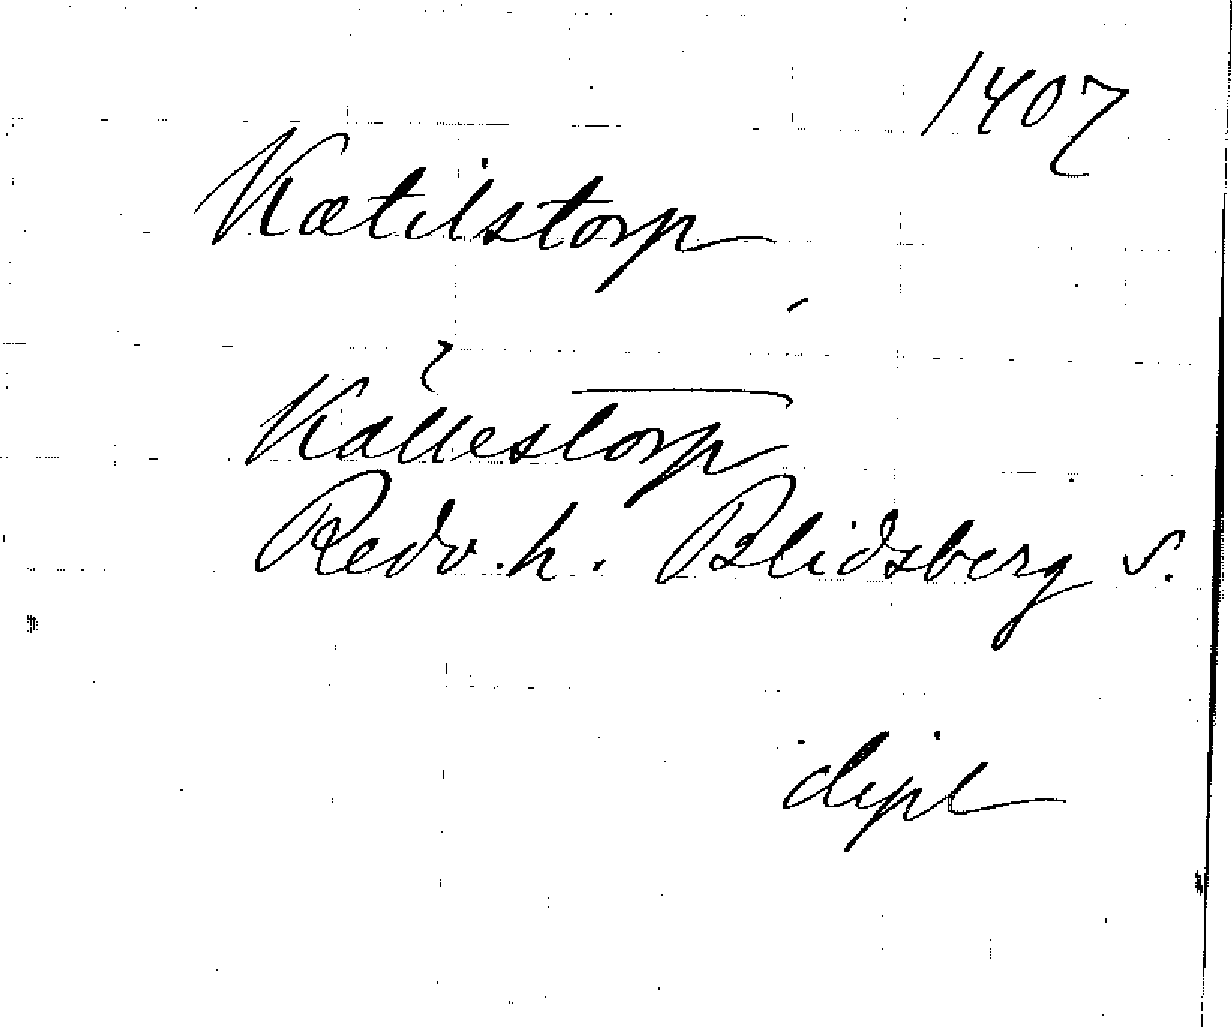 1407
Kætilstorp
Källestorp
Redv. h. Blidsberg s.
dipl